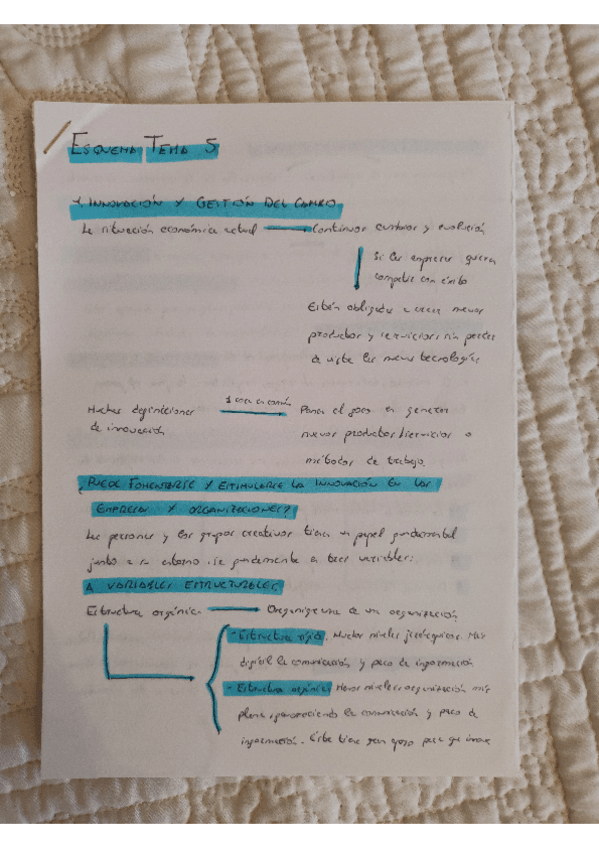 ESQUEMA TEMA 5
1. INNOVACIÓN Y GESTIÓN DEL CAMBIO
La situación económica actual → Continuos cambios y evolución
Si las empresas quieren
competir con éxito
Están obligadas a crear nuevos
productos y servicios, sin perder
de vista las nuevas tecnologías
Muchas definiciones
de innovación
1 cosa en común
Poner el foco en generar
nuevos productos/servicios o
métodos de trabajo.
¿PUEDE FOMENTARSE Y ESTIMULARSE LA INNOVACIÓN EN LAS
EMPRESAS Y ORGANIZACIONES?
Las personas y los grupos creativos tienen un papel fundamental
junto a su entorno, se fundamenta en tres variables:
A VARIABLES ESTRUCTURALES
Estructura orgánica → Organigrama de una organización
- Estructura rígida. Muchos niveles jerárquicos. Más
difícil la comunicación y paso de información
- Estructura orgánica Menos niveles organización más
plana, favoreciendo la comunicación y paso de
información. Este tiene gran apoyo para que innove